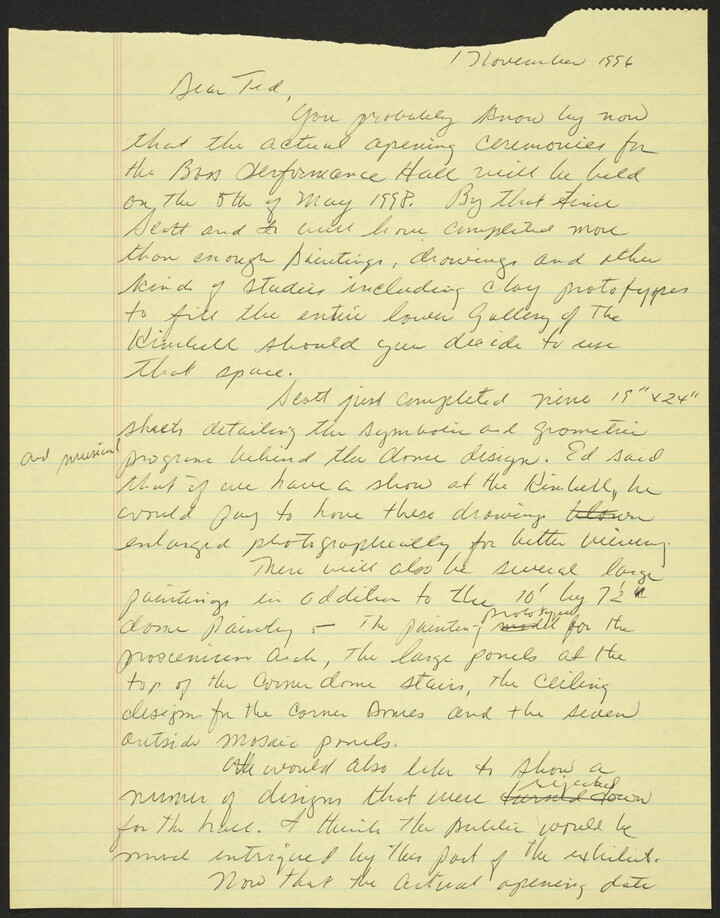 1 November 1996
Dear Ted,
You probably know by now
that the actual opening ceremonies for
the Bass Performance Hall will be held
on the 8th of May 1998. By that time
Scott and I will have completed more
than enough paintings, drawings and other
kinds of studies including clay prototypes
to fill the entire lower Gallery of the
Kimbell should you decide to use
that space.
Scott just completed nine 19" x 24"
sheets detailing the symbolic and geometric
and musical
program behind the dome design. Ed said
that if we have a show at the Kimbell, he
would pay to have these drawings blown
enlarged photographically for better viewing.
There will also be several large
paintings in addition to the 10' by 7½'
dome painting — The painting prototypes model for the
proscenium arch, the large panels at the
top of the corner dome stairs, the ceiling
designs for the corner domes and the seven
outside mosaic panels.
We would also like to show a
numer of designs that were turned down rejected
for the hall. I think the public would be
much intrigued by this part of the exhibit.
Now that the actual opening date